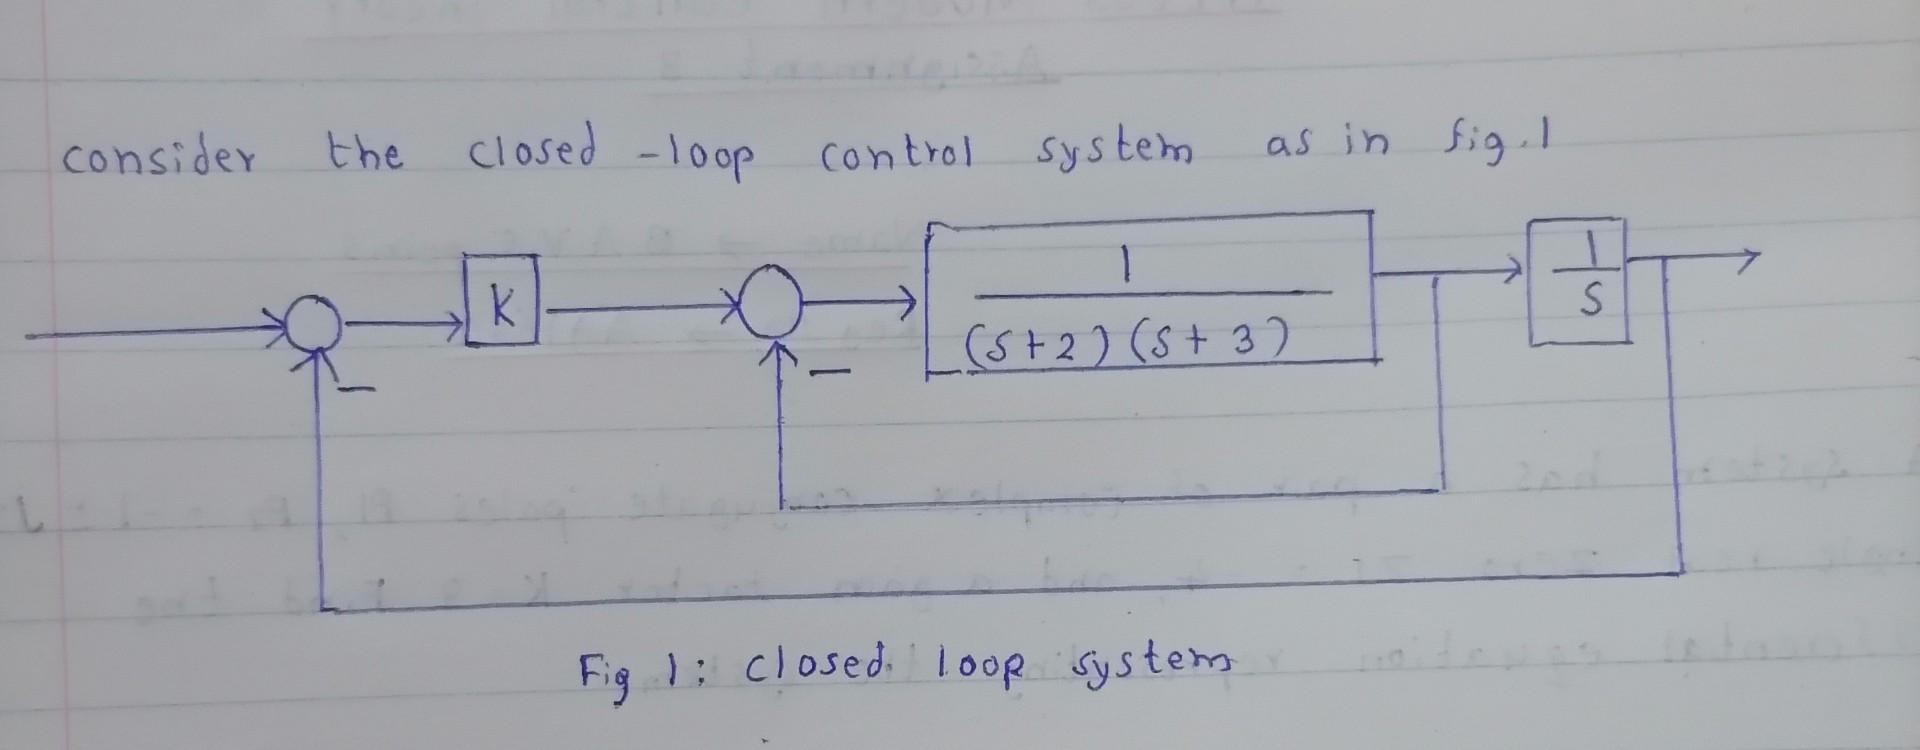 consider the closed-loop control system as in fig.1
K
1
(s+2)(s+3)
1
s
-
-
Fig 1: closed loop system